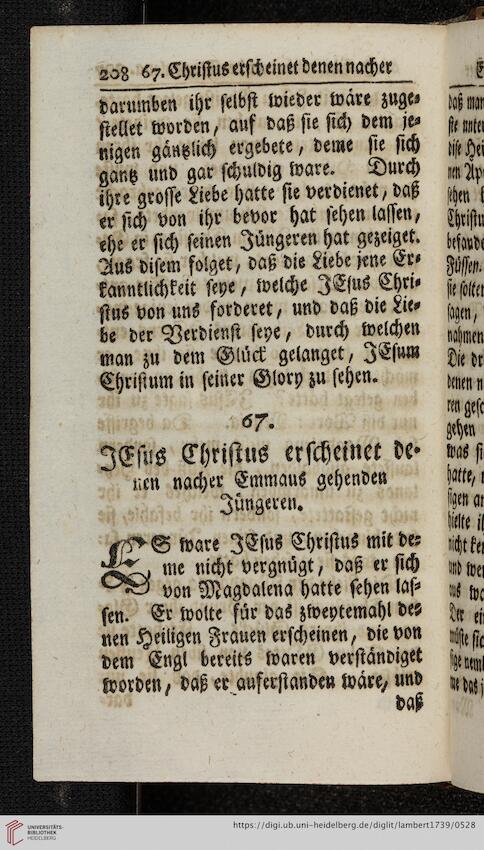 208 67. Christus erscheinet denen nacher
darumben ihr selbst wieder wäre zuge-
stellet worden, auf daß sie sich dem je-
nigen gäntzlich ergebete, deme sie sich
gantz und gar schuldig ware. Durch
ihre grosse Liebe hatte sie verdienet, daß
er sich von ihr bevor hat sehen lassen,
ehe er sich seinen Jüngeren hat gezeiget.
Aus disem folget, daß die Liebe jene Er-
kanntlichkeit seye, welche JEsus Chri-
stus von uns forderet, und daß die Lie-
be der Verdienst seye, durch welchen
man zu dem Glück gelanget, JEsum
Christum in seiner Glory zu sehen.
67.
JEsus Christus erscheinet de-
nen nacher Emmaus gehenden
Jüngeren.
ES ware JEsus Christus mit de-
me nicht vergnügt, daß er sich
von Magdalena hatte sehen las-
sen. Er wolte für das zweytemahl de-
nen Heiligen Frauen erscheinen, die von
dem Engl bereits waren verständiget
worden, daß er auferstanden wäre, und
daß
UNIVERSITÄTS-
BIBLIOTHEK
HEIDELBERG
https://digi.ub.uni-heidelberg.de/diglit/lambert1739/0528